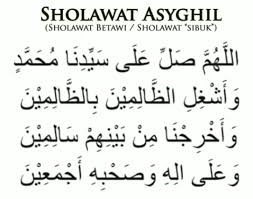 SHOLAWAT ASYGHIL
(SHOLAWAT BETAWI / SHOLAWAT "SIBUK")
اللَّهُمَّ صَلِّ عَلَى سَيِّدِنَا مُحَمَّدٍ
وَأَشْغِلِ الظَّالِمِيْنَ بِالظَّالِمِيْنَ
وَأَخْرِجْنَا مِنْ بَيْنِهِمْ سَالِمِيْنَ
وَعَلَى الِهِ وَصَحْبِهِ أَجْمَعِيْنَ